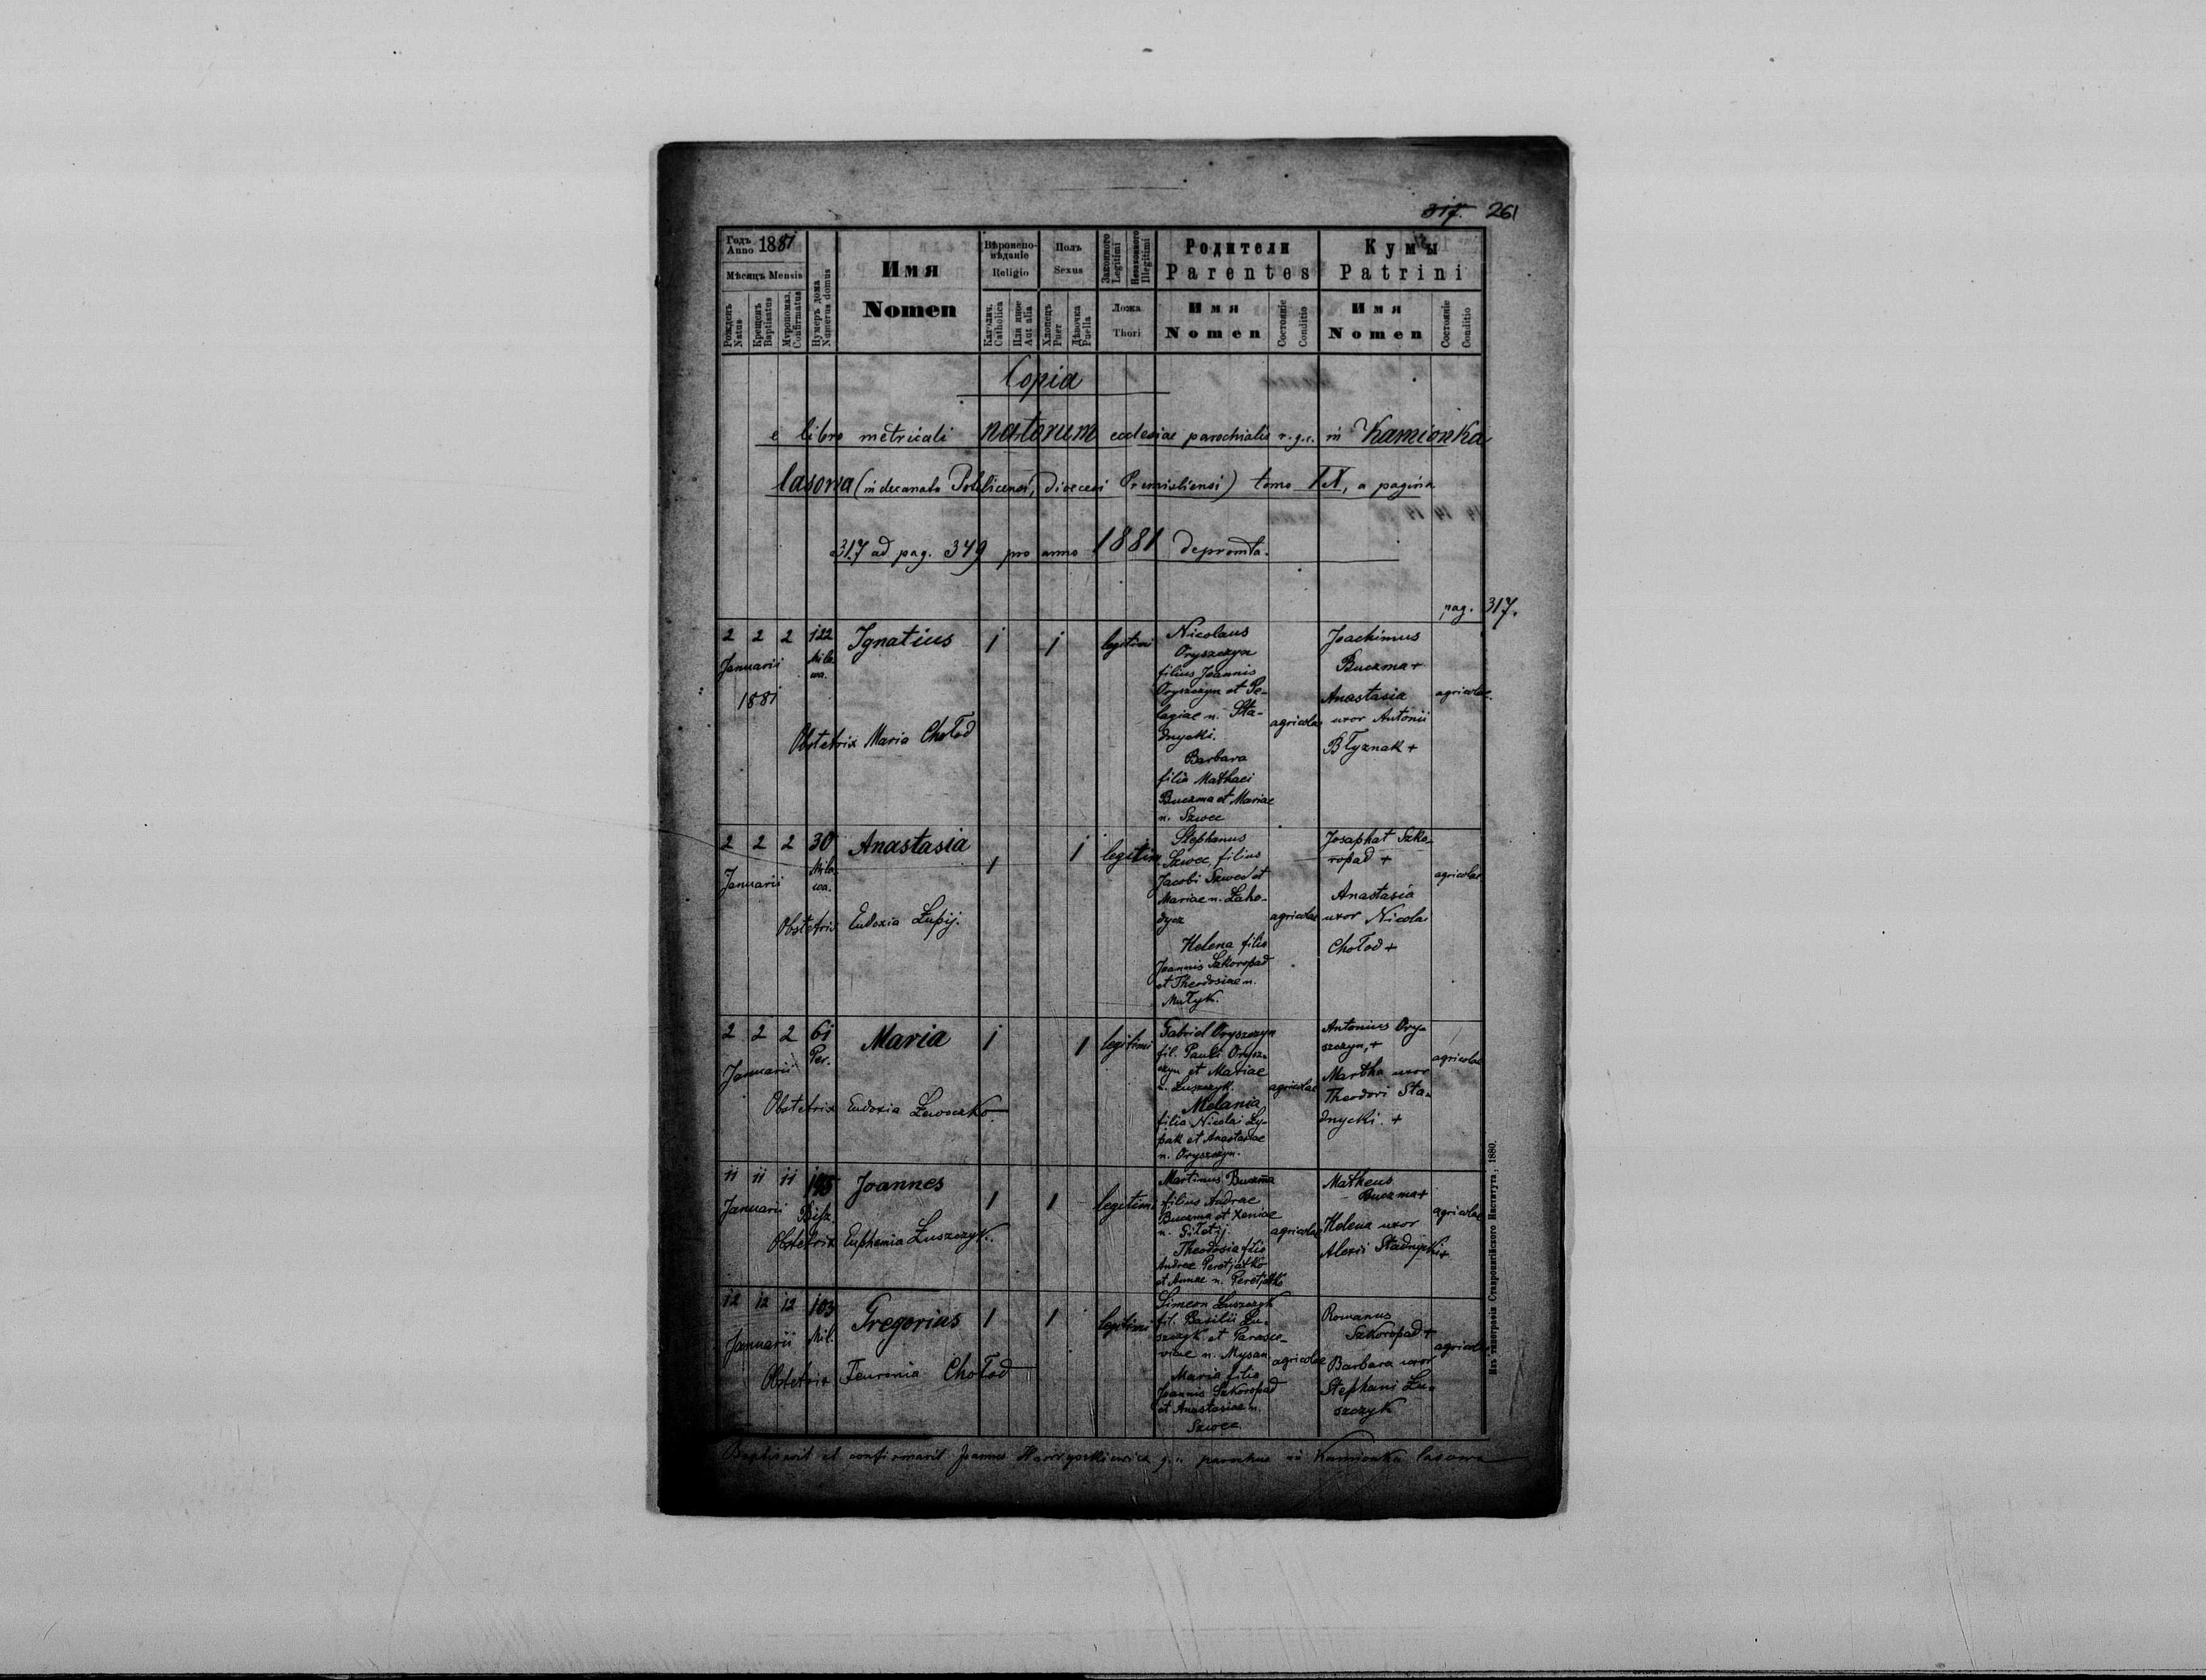 317. 261
Годъ Anno 1881
Мѣсяцъ Mensis
Рожденъ Natus
Крещенъ Baptisatus
Мѵропомаз. Confirmatus
Нумеръ дома Numerus domus
Имя
Nomen
Вѣроисповѣданіе
Religio
Католич. Catholica
Или иное Aut alia
Полъ
Sexus
Хлопецъ Puer
Дѣвочка Puella
Законного Legitimi
Незаконного Illegitimi
Ложа
Thori
Родители
Parentes
Имя
Nomen
Состояніе Conditio
Кумы
Patrini
Имя
Nomen
Состояніе Conditio
Copia
e libro metricali natorum ecclesiae parochialis r.g.c. in Kamionka
lasowa (in decanato Potelicensi, Dioecesi Premisliensi) tomo IX, a pagina
317 ad pag. 349 pro anno 1881 depromta.
pag. 317.
2 2 2 122 Ignatius 1 1 legitimi
Januarii Mila
wa.
1881
Obstetrix Maria Chołod
Nicolaus
Oryszczyn
filius Joannis
Oryszczyn et Pe-
lagiae n. Sta-
dnycki.
Barbara
filia Mathaei
Buczma et Mariae
n. Szwec
agricolae
Joachimus
Buczma +
Anastasia
uxor Antonii
Błyznak +
agricolae.
2 2 2 30 Anastasia 1 1 legitim.
Januarii Mila
wa.
Obstetrix Eudoxia Łupij.
Stephanus
Szwec, filius
Jacobi Szwec et
Mariae n. Laho-
dycz
Helena filia
Joannis Szkoropad
et Theodosiae n.
Mułyk.
agricolae
Josaphat Szko-
ropad +
Anastasia
uxor Nicolai
Chołod +
agricolae
2 2 2 61 Maria 1 1 legitimi
Januarii Per.
Obstetrix Eudoxia Lewoczko
Gabriel Oryszczyn
fil. Pauli Orysz-
czyn et Mariae
n. Łuszczyk.
Melania
filia Nicolai Ły-
pak et Anastasiae
n. Oryszczyn.
agricolae
Antonius Ory-
szczyn, +
Martha uxor
Theodori Sta-
dnycki. +
agricolae
11 11 11 195 Joannes 1 1 legitimi
Januarii
Obstetrix Euphemia Łuszczyk.
Martinus Buczma
filius Andrae
Buczma et Xeniae
n.
Theodosia filia
Andrae Peretjatko
et Annae n. Peretjatko
agricolae
Matheus
Buczma +
Helena uxor
Alexii Stadnycki +
agricolae
12 12 12 103 Gregorius 1 1 legitimi
Januarii Mil.
Obstetrix Feuronia Chołod
Simeon Łuszczyk
fil. Basilii Łu-
szczyk et Parasce-
viae n. Mysan
Maria filia
Joannis Szkoropad
et Anastasiae n.
Szwec
agricolae
Romanus
Szkoropad +
Barbara uxor
Stephani Łu-
szczyk
agricolae
Baptisavit et confirmavit Joannes parochus in Kamionka lasowa
Изъ типографіи Ставропигійского Института, 1880.